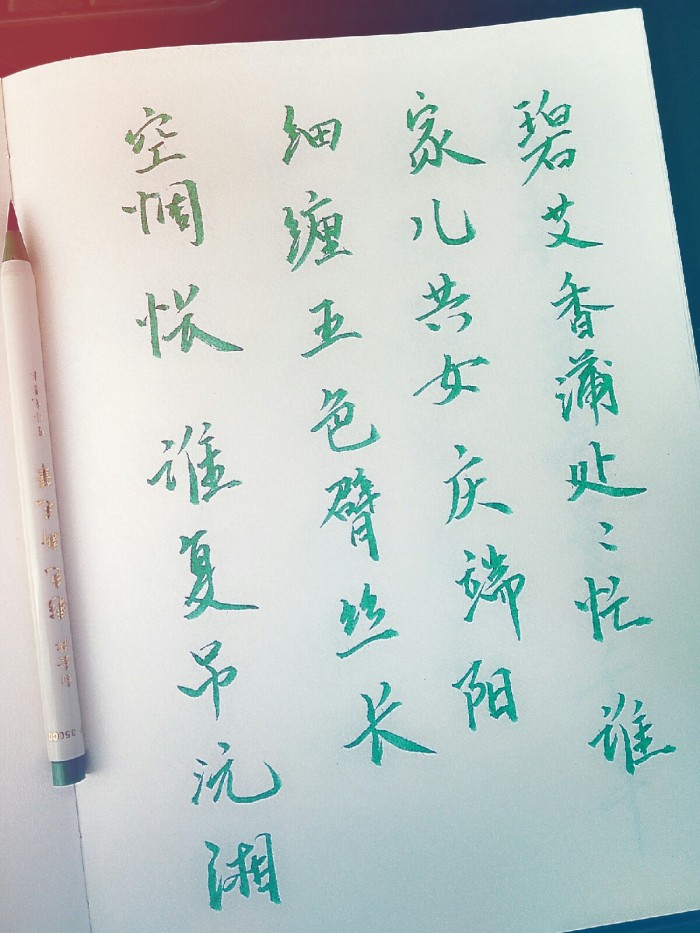 碧艾香蒲处〻忙谁
家儿共女庆端阳
细缠五色臂丝长
空惆怅谁复吊沅湘